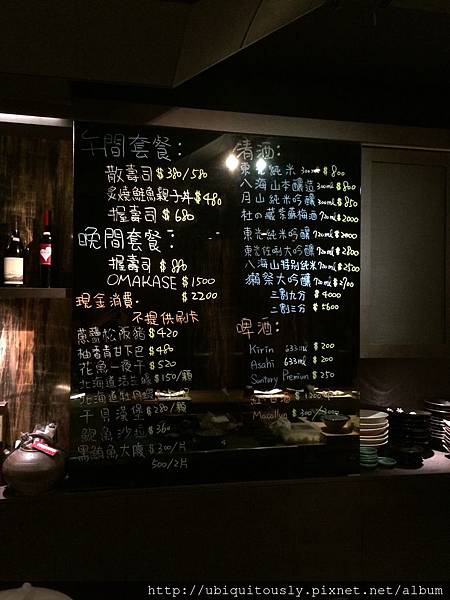 午間套餐：
散壽司 $380/580
炙燒鮭魚親子丼 $480
握壽司 $680
晚間套餐：
握壽司 $880
OMAKASE $1500
$2200
現金消費.
不提供刷卡
蔥鹽松阪豬 $420
柚香青甘下巴 $480
花魚一夜干 $520
北海道活生蠔 $150/顆
北海道牡丹蝦
干貝湯保 $280/顆
鮑魚沙拉 $360
黑鮪魚大腹 $300/片
500/2片
清酒：
東光純米 300ml $800
八海山本釀造 300ml $800
月山純米吟釀 300ml $850
杜の藏紫蘇梅酒 720ml $2000
東光純米吟釀 720ml $2000
東光佐利大吟釀 720ml $2800
八海山特別純米 720ml $2500
獺祭大吟釀 720ml $2700
三割九分 $4000
二割三分 $5600
啤酒：
Kirin 633ml $200
Asahi 633ml $200
Suntory Premium $250
Macallun $300/
http://ubiquitously.pixnet.net/album